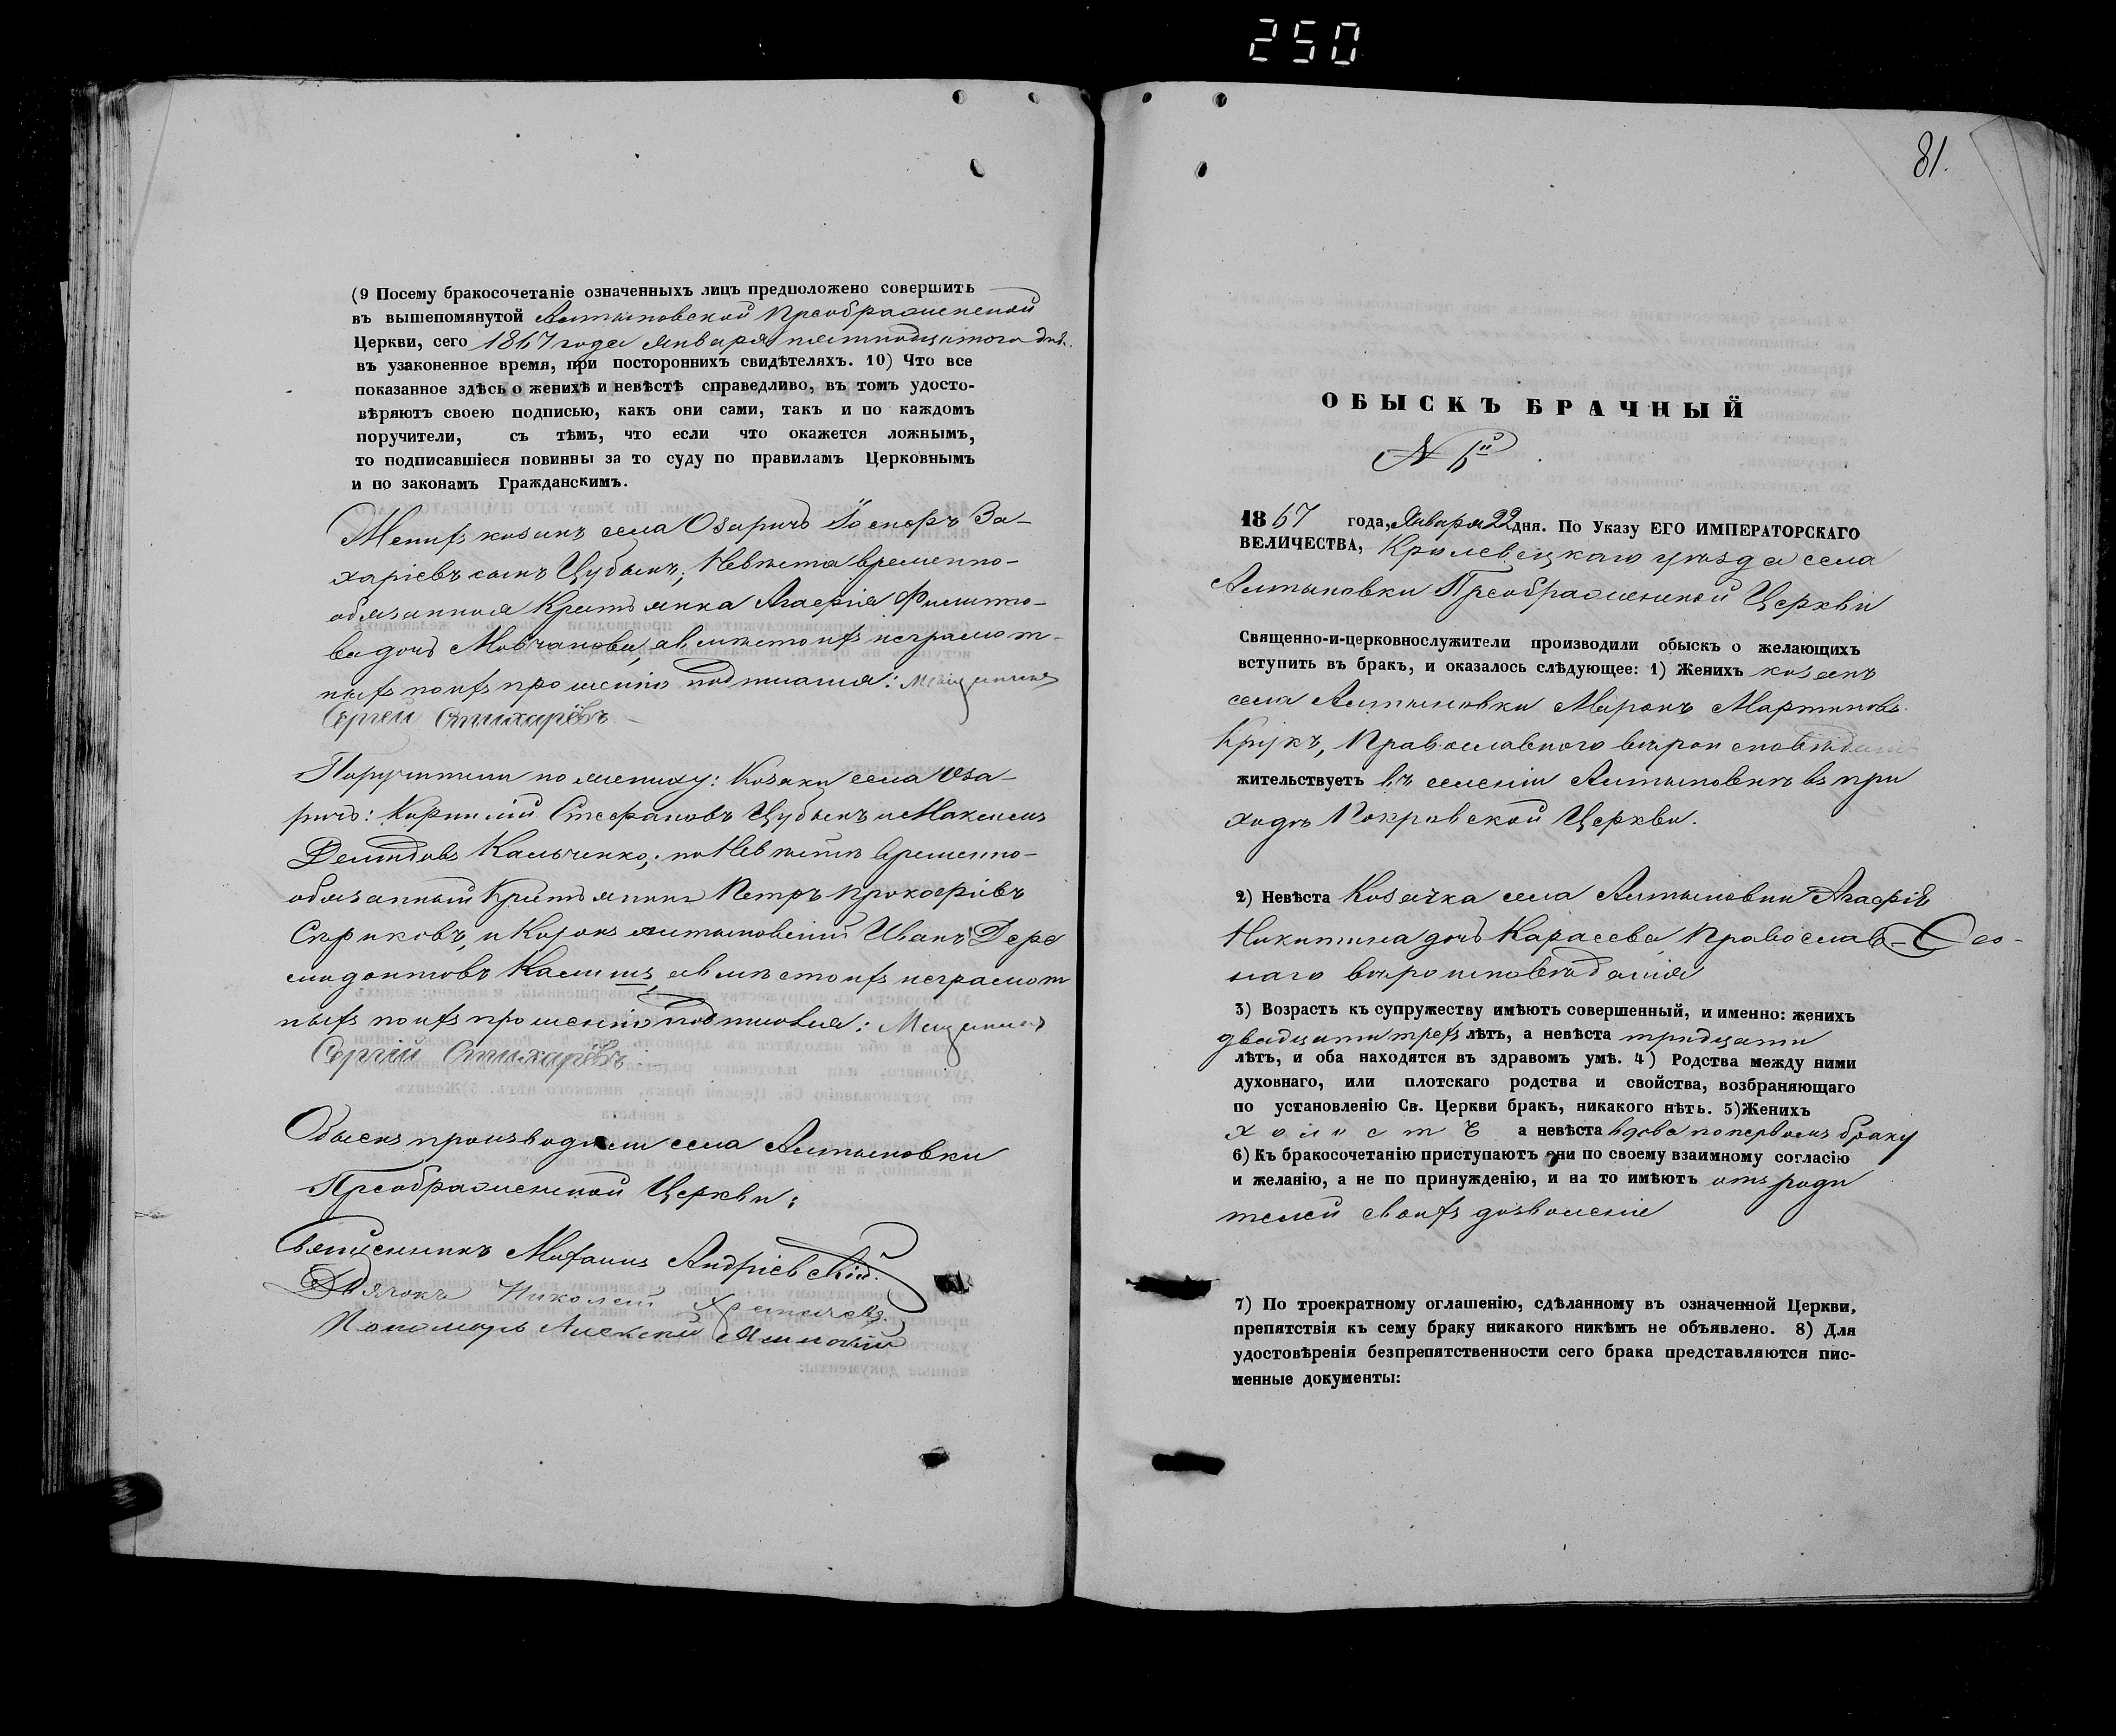 250
(9 Посему бракосочетаніе означенныхъ лицъ предположено совершить
въ вышепомянутой Алтыновской Преображенской
Церкви, сего 1867 года января пятнадцатого дня.
въ узаконенное время, при постороннихъ свидѣтеляхъ. 10) Что все
показанное здѣсь о женихѣ и невѣстѣ справедливо, въ томъ удосто-
вѣряютъ своею подписью, какъ они сами, такъ и по каждомъ
поручители, съ тѣмъ, что если что окажется ложнымъ,
то подписавшіеся повинны за то суду по правиламъ Церковнымъ
и по законамъ Гражданскимъ.
Женихъ козакъ села Озаричъ Іосифъ За-
харіевъ сынъ Цубыкъ; Невѣста временно-
обязанная Крестьянка Агафія Филипо-
ва дочь Мовчанова, а вмѣсто ихъ неграмот-
ныхъ по ихъ прошенію подписался: Мѣщанинъ
Сергей Стихарёвъ
Поручители по жениху: Козаки села Оза-
ричъ: Корнилій Стефановъ Цубыкъ и Максимъ
Демидовъ Кальченко; по Невѣстѣ временно-
обязанный Крестьянинъ Петръ Прокофіевъ
Сѣриковъ, и Козакъ алтыновскій Иванъ
а вмѣсто ихъ неграмот
ныхъ по ихъ прошенію подписовался: Мещанинъ
Сергій Стихарёвъ
Обыскъ производили села Алтыновки
Преображенской Церкви:
Священникъ Михаилъ Андріевскій.
Дячокъ Николай
Пономарь Алексій
81.
ОБЫСКЪ БРАЧНЫЙ
N 6й
1867 года, Января 22 дня. По Указу ЕГО ИМПЕРАТОРСКАГО
ВЕЛИЧЕСТВА, Кролевецкаго уѣзда села
Алтыновки Преображенской Церкви
Священно-и-церковнослужители производили обыскъ о желающихъ
вступить въ бракъ, и оказалось слѣдующее: 1) Женихъ козакъ
села Алтыновки Миронъ Мартиновъ
Крукъ, Православного вѣроисповѣданія
жительствуетъ въ селеніи Алтыновкѣ въ при
ходѣ Покровской Церкви.
2) Невѣста Козачка села Алтыновки Агафія
Никитина дочь Карасева Православ-
наго вѣроисповѣданія
3) Возрастъ къ супружеству имѣютъ совершенный, и именно: женихъ
двадцати трехъ лѣтъ, а невѣста тридцати
лѣтъ, и оба находятся въ здравомъ умѣ. 4) Родства между ними
духовнаго, или плотскаго родства и свойства, возбраняющаго
по установленію Св. Церкви бракъ, никакого нѣтъ. 5)Женихъ
холостъ а невѣста вдова по первомъ браку
6) Къ бракосочетанію приступаютъ они по своему взаимному согласію
и желанію, а не по принужденію, и на то имѣютъ отъ роди
телей своихъ дозволеніе
7) По троекратному оглашенію, сдѣланному въ означенной Церкви,
препятствія къ сему браку никакого никѣмъ не объявлено. 8) Для
удостовѣренія безпрепятственности сего брака представляются пис-
менные документы: